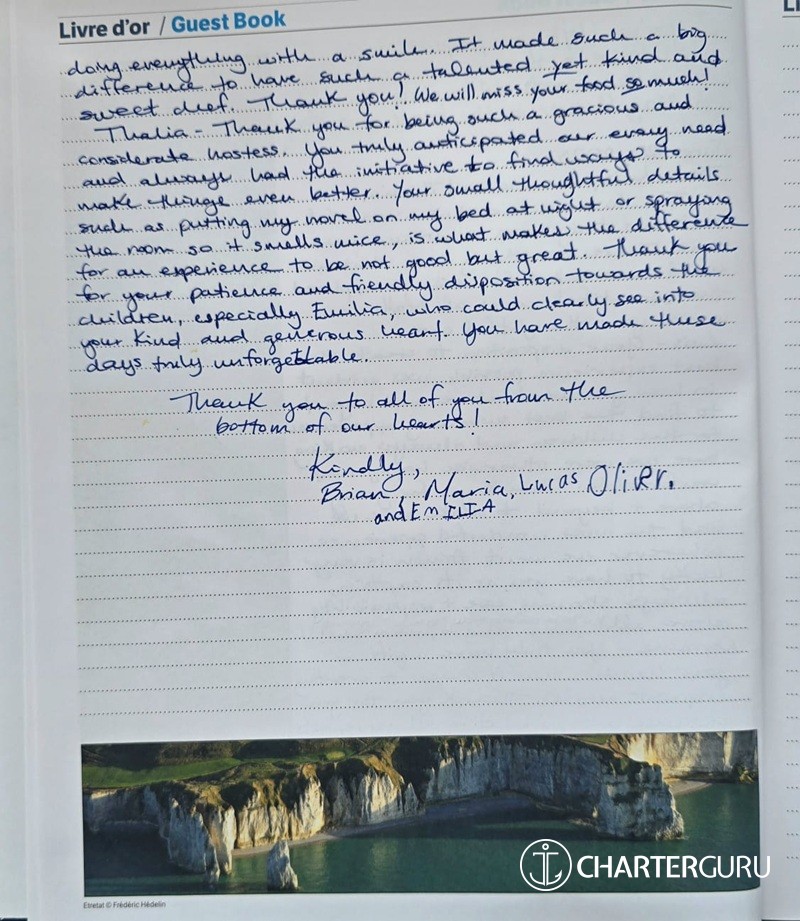 Livre d'or / Guest Book
doing everything with a smile. It made such a big
difference to have such a talented yet kind and
sweet chef. Thank you! We will miss your food so much!
Thalia - Thank you for being such a gracious and
considerate hostess. You truly anticipated our every need
and always had the initiative to find ways to
make things even better. Your small thoughtful details
such as putting my novel on my bed at night or spraying
the room so it smells nice, is what makes the difference
for an experience to be not good but great. Thank you
for your patience and friendly disposition towards the
children, especially Emilia, who could clearly see into
your kind and generous heart. You have made these
days truly unforgettable.
Thank you to all of you from the
bottom of our hearts!
Kindly,
Brian, Maria, Lucas Oliver.
and EmILIA
Etretat © Frédéric Hédelin
CHARTERGURU
LI